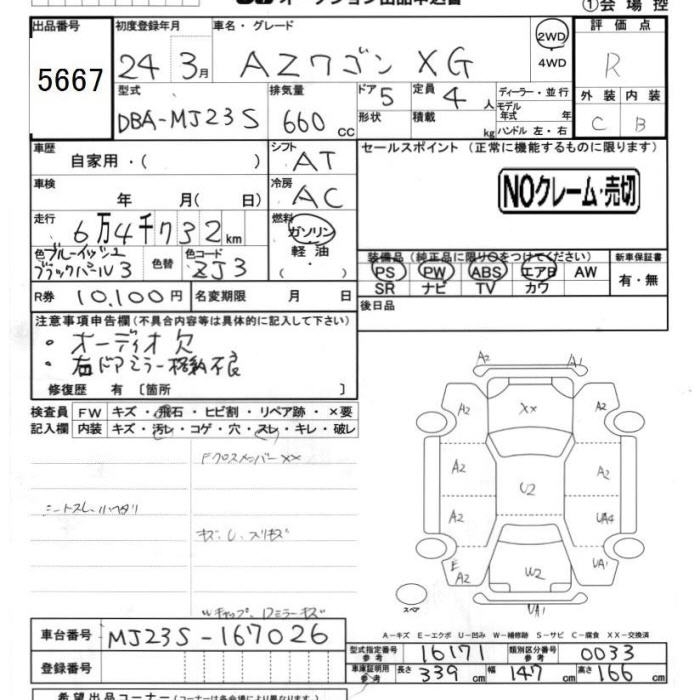 オークション出品申込書
①会場控
出品番号 初度登録年月 車名・グレード 評価点
5667 24年3月 AZワゴン XG 2WD 4WD R
型式 排気量 ドア 定員 ディーラー・並行 外装 内装
DBA-MJ23S 660cc 5 4人 モデル年式 年 C B
形状 積載 kg ハンドル 左・右
車歴 シフト セールスポイント（正常に機能するものに限ります）
自家用・（ ） AT
車検 冷房 NOクレーム・売切
年 月（ 日） AC
走行 燃料
6万4千732km ガソリン
軽油
色 ブルーイッシュブラックパール3 色替 色コード ZJ3
装備品（純正品に限り○をつけてください） 新車保証書
PS PW ABS エアB AW 有・無
SR ナビ TV カワ
R券 10,100円 名変期限 月 日 後日品
注意事項申告欄（不具合内容等は具体的に記入して下さい）
・オーディオ欠
・右ドアミラー格納不良
修復歴 有 〔箇所 〕
検査員 FW キズ・飛石・ヒビ割・リペア跡・×要
記入欄 内装 キズ・汚レ・コゲ・穴・スレ・キレ・破レ
Fクロスメンバー××
キズ、U、スリキズ
A2 A1
A2 XX A2
A2 U2 A2
A2 UA4
E A2 W2 UA1
スペア UA1
A－キズ E－エクボ U－凹み W－補修跡 S－サビ C－腐食 XX－交換済
車台番号 MJ23S-167026
型式指定番号 参考 16171 類別区分番号 参考 0033
登録番号
車庫証明用 参考 長さ 339cm 幅 147cm 高さ 166cm
希望出品コーナー（コーナーは各会場により異なります）